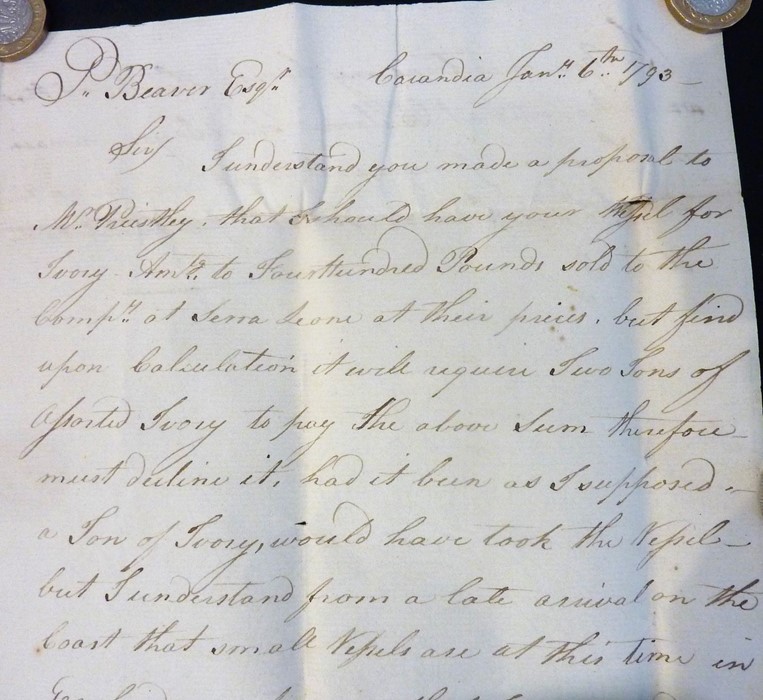 P. Beaver Esqr. Cacandia Jany. 6th. 1793
Sir/ I understand you made a proposal to
Mr. Priestley that I should have your Vessel for
Ivory Amtg. to Four Hundred Pounds sold to the
Compy. at Serra Leone at their prices, but find
upon Calculation it will require Two Tons of
Assorted Ivory to pay the above Sum therefore
must decline it, had it been as I supposed,
a Ton of Ivory, would have took the Vessel
but I understand from a late arrival on the
Coast that small Vessels are at this time in